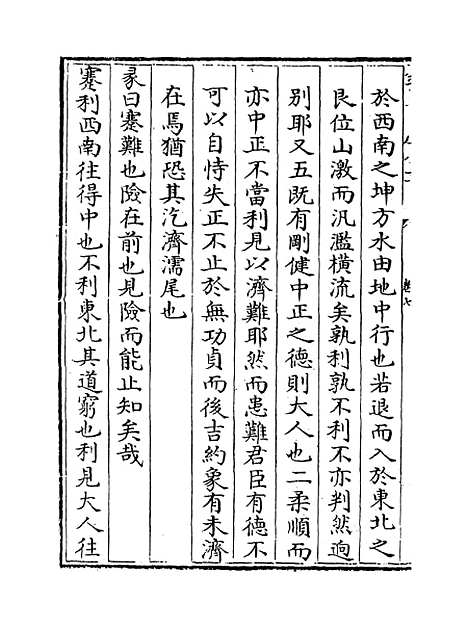 於西南之坤方水由地中行也若退而入於東北之
艮位山激而汎濫橫流矣孰利孰不利不亦判然逈
別耶又五既有剛健中正之德則大人也二柔順而
亦中正不當利見以濟難耶然而患難君臣有德不
可以自恃失正不止於無功貞而後吉約象有未濟
在焉猶恐其汔濟濡尾也
彖曰蹇難也險在前也見險而能止知矣哉
蹇利西南往得中也不利東北其道窮也利見大人往
卷七